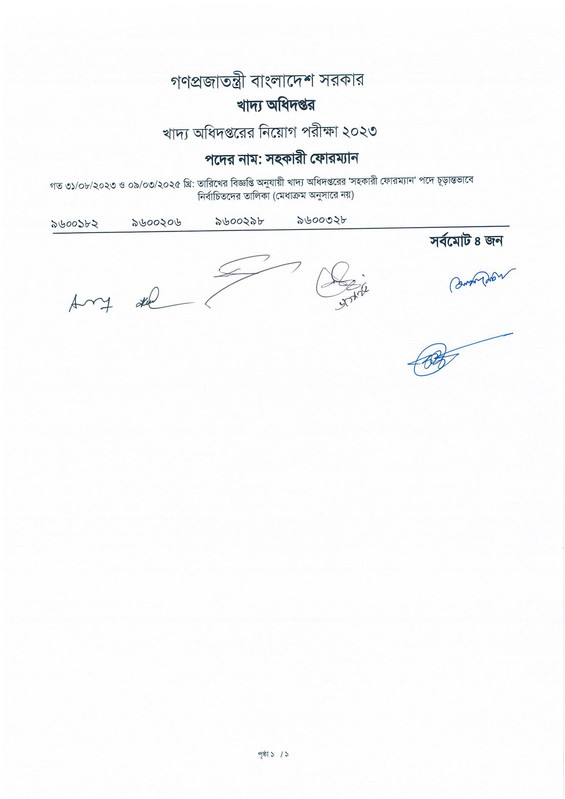 গণপ্রজাতন্ত্রী বাংলাদেশ সরকার
খাদ্য অধিদপ্তর
খাদ্য অধিদপ্তরের নিয়োগ পরীক্ষা ২০২৩
পদের নাম: সহকারী ফোরম্যান
গত ৩১/০৮/২০২৩ ও ০৯/০৩/২০২৫ খ্রি: তারিখের বিজ্ঞপ্তি অনুযায়ী খাদ্য অধিদপ্তরের 'সহকারী ফোরম্যান' পদে চূড়ান্তভাবে
নির্বাচিতদের তালিকা (মেধাক্রম অনুসারে নয়)
৯৬০০১৮২ ৯৬০০২০৬ ৯৬০০২৯৮ ৯৬০০৩২৮
সর্বমোট ৪ জন
পৃষ্ঠা ১ /১